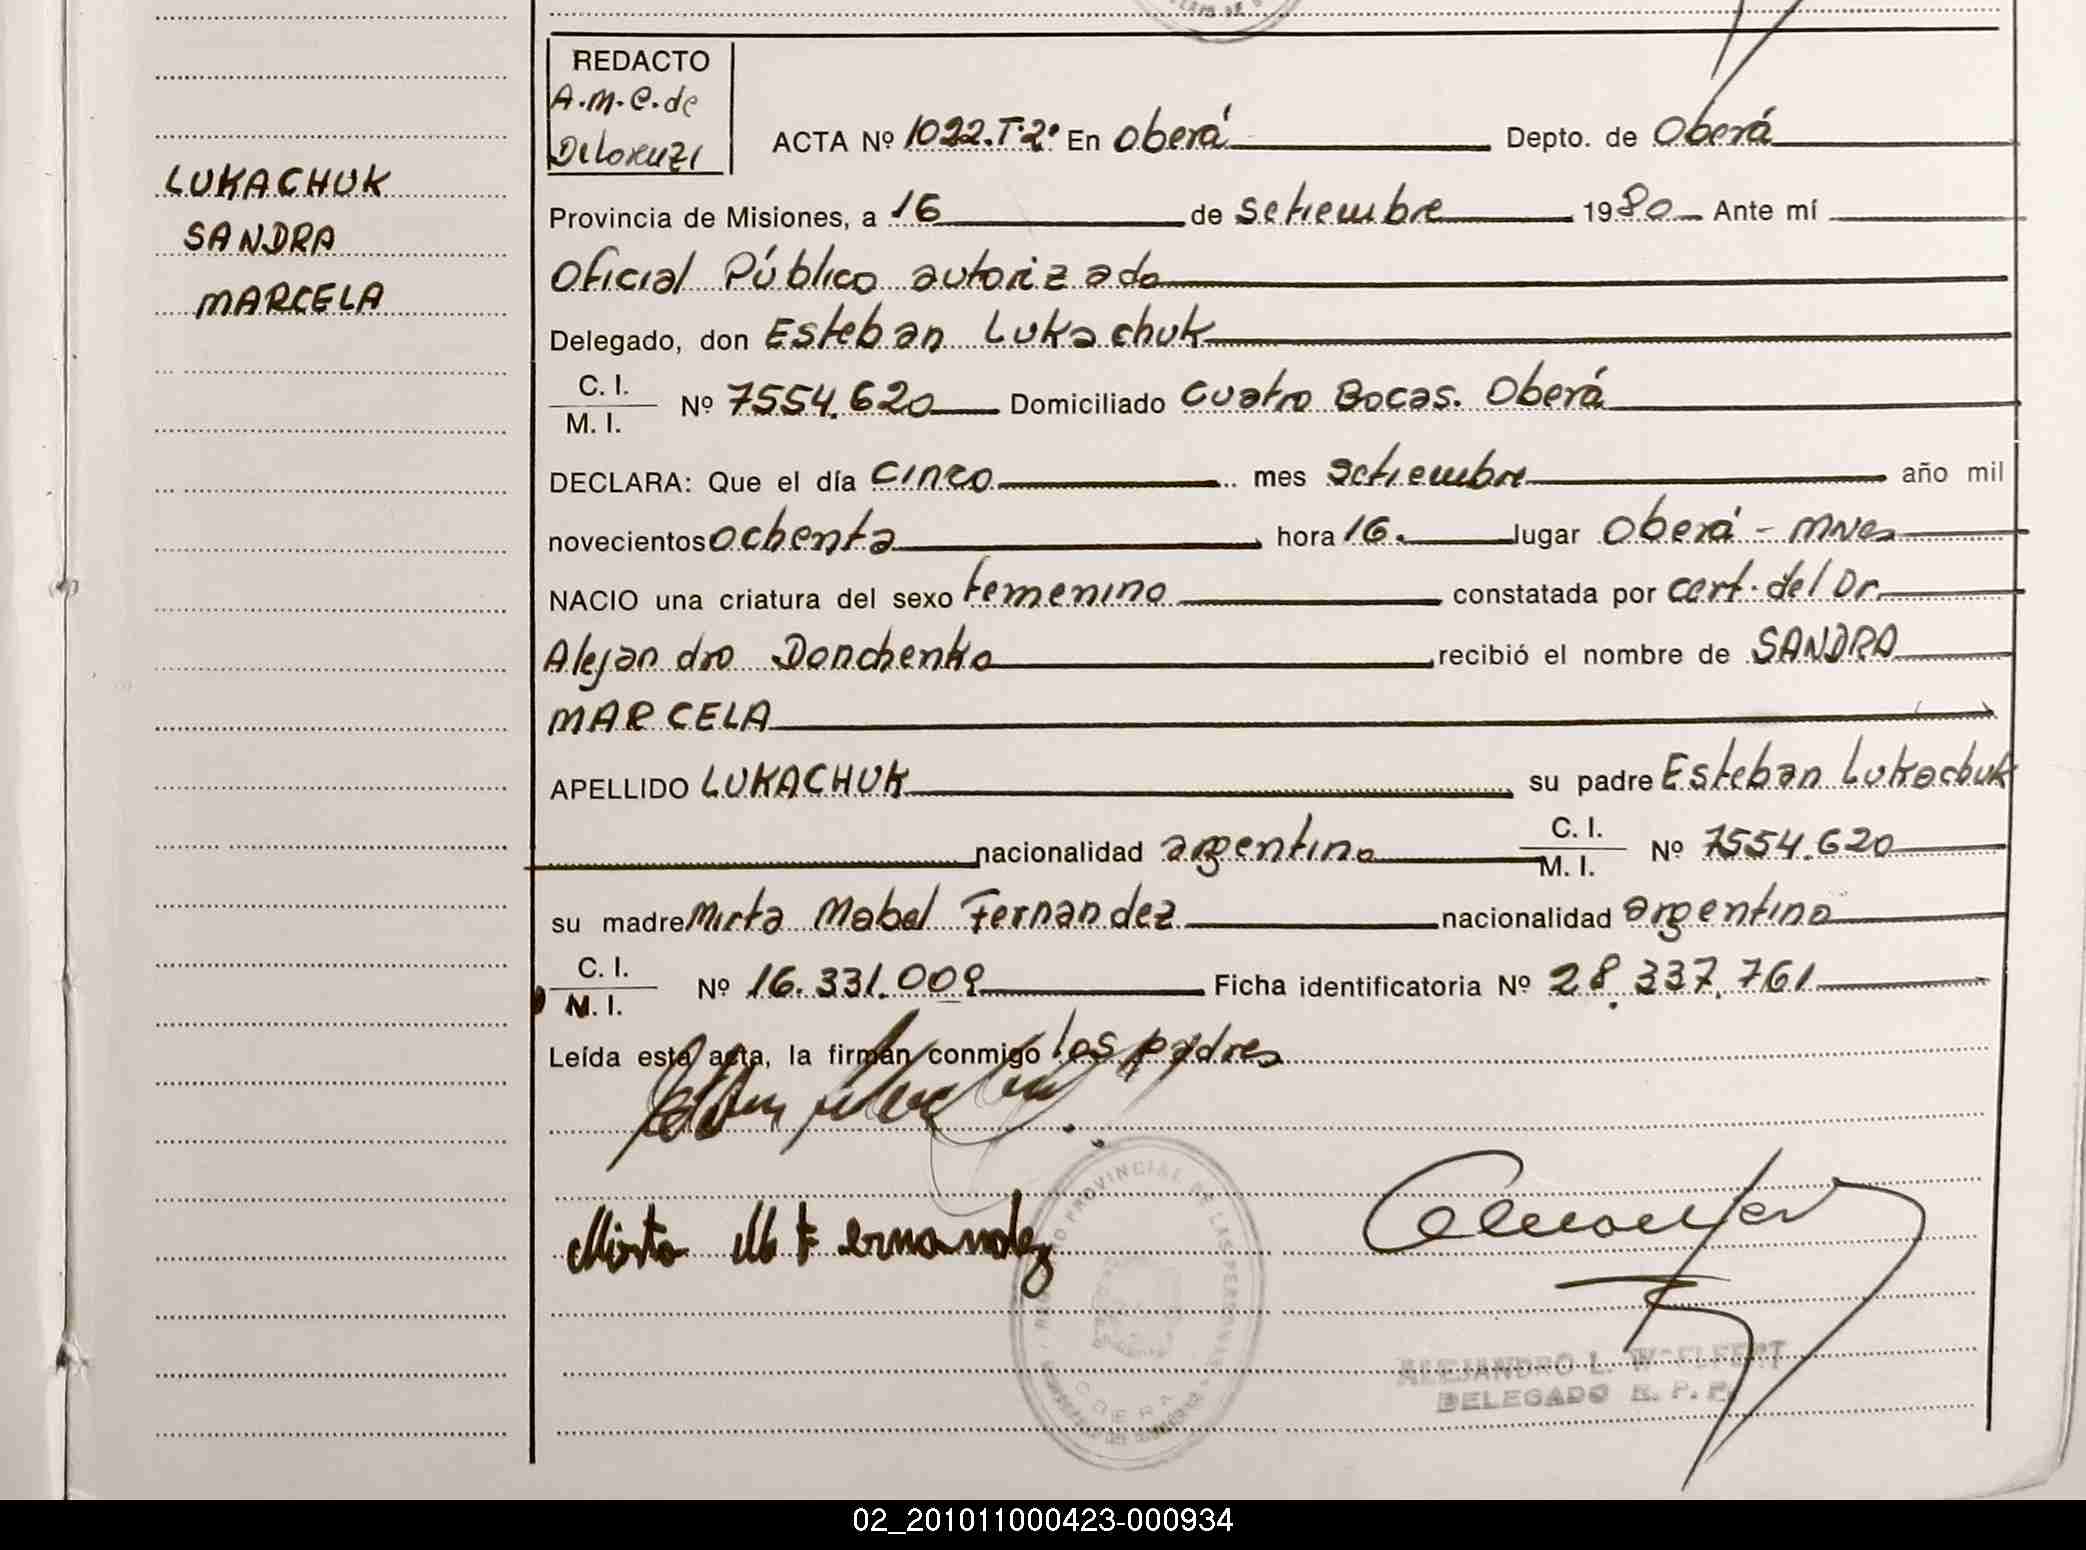 REDACTO
A.M.C. de
Delorenzi
ACTA Nº 1022.T.2º En Oberá Depto. de Oberá
LUKACHUK
SANDRA
MARCELA
Provincia de Misiones, a 16 de setiembre 1980 Ante mí
Oficial Público autorizado
Delegado, don Esteban Lukachuk
C. I.
M. I. Nº 7554.620 Domiciliado Cuatro Bocas. Oberá
DECLARA: Que el día cinco mes setiembre año mil
novecientos ochenta hora 16. lugar Oberá - Mnes
NACIO una criatura del sexo femenino constatada por cert. del Dr.
Alejandro Donchenko recibió el nombre de SANDRA
MARCELA
APELLIDO LUKACHUK su padre Esteban Lukachuk
nacionalidad argentina C. I. M. I. Nº 7554.620
su madre Mirta Mabel Fernandez nacionalidad argentina
C. I.
M. I. Nº 16.331.009 Ficha identificatoria Nº 28.337.761
Leída esta acta, la firman conmigo los padres
Mirta M Fernandez
REGISTRO PROVINCIAL DE LAS PERSONAS
OBERA
ALEJANDRO L. WOELFERT
DELEGADO R. P. P.
02_201011000423-000934